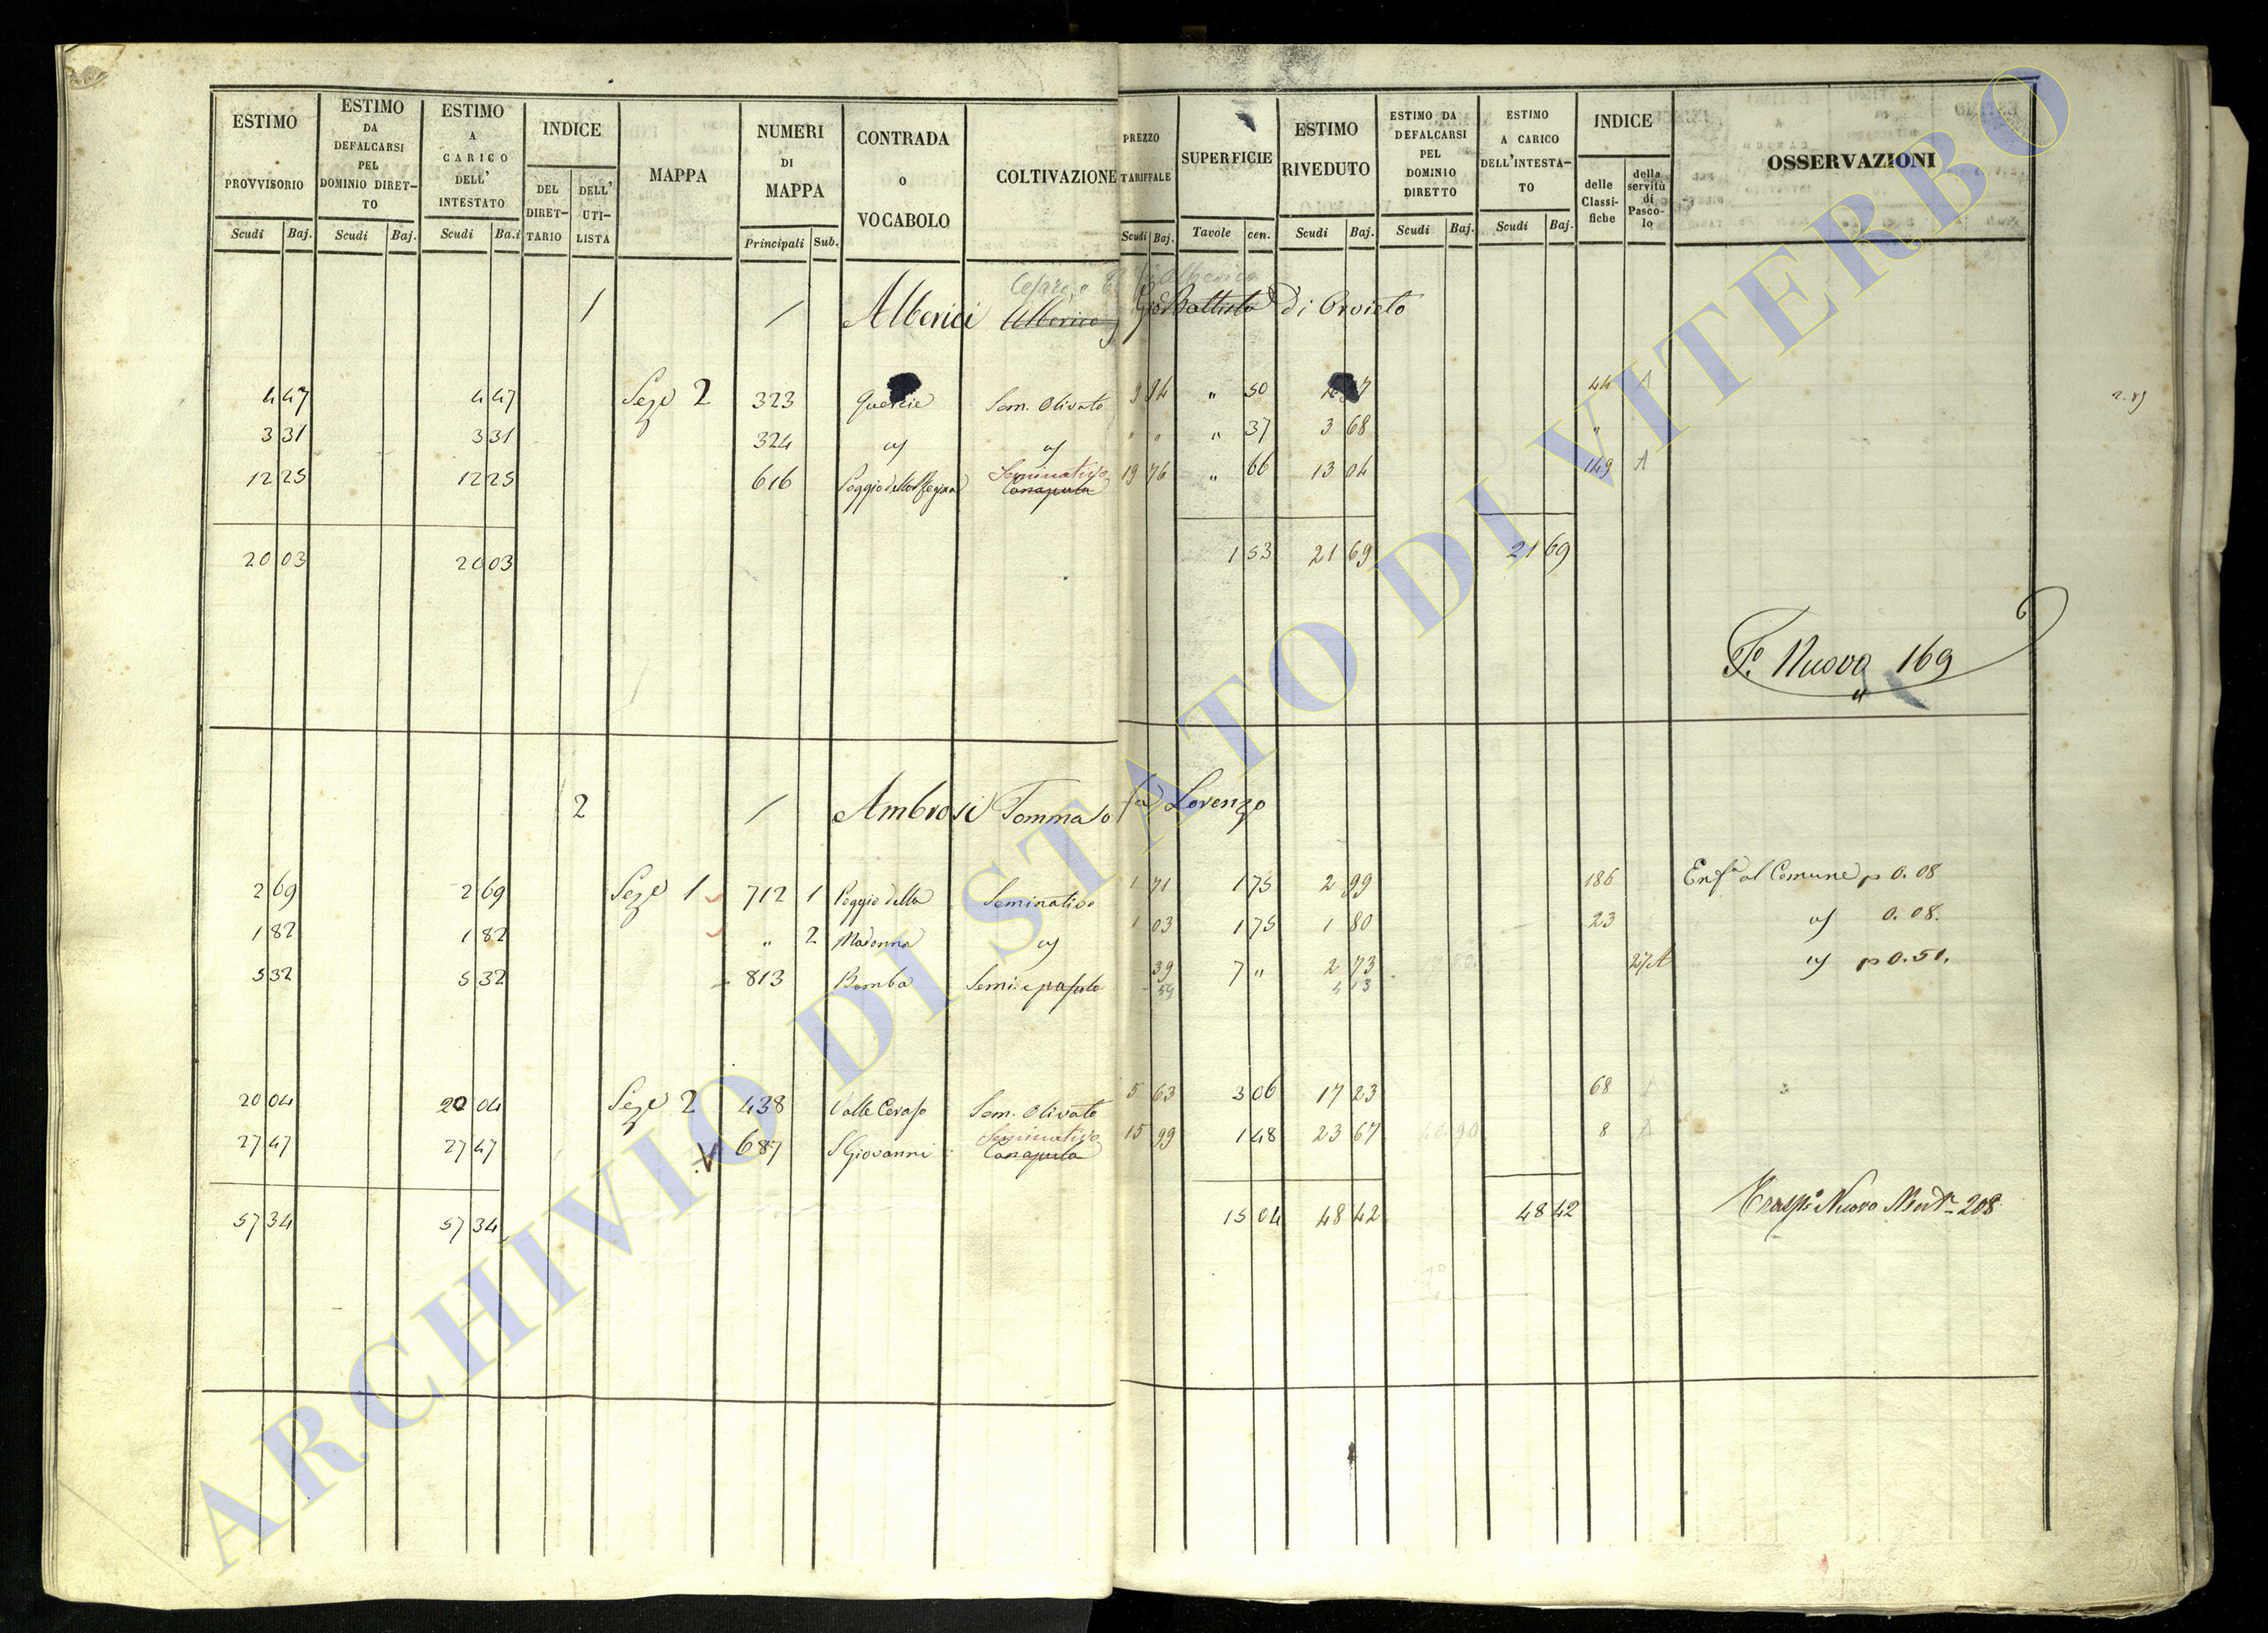 ESTIMO PROVVISORIO Scudi Baj.
ESTIMO DA DEFALCARSI PEL DOMINIO DIRET-TO Scudi Baj.
ESTIMO A CARICO DELL' INTESTATO Scudi Ba.i
INDICE DEL DIRET-TARIO DELL' UTI-LISTA
MAPPA
NUMERI DI MAPPA Principali Sub.
CONTRADA O VOCABOLO
COLTIVAZIONE
PREZZO TARIFFALE Scudi Baj.
SUPERFICIE Tavole cen.
ESTIMO RIVEDUTO Scudi Baj.
ESTIMO DA DEFALCARSI PEL DOMINIO DIRETTO Scudi Baj.
ESTIMO A CARICO DELL'INTESTA-TO Scudi Baj.
INDICE delle Classi-fiche della servitù di Pasco-lo
OSSERVAZIONI
Cesare, e
1 / Alberici Alberico Gio Battista di Orvieto
4 47 4 47 Seze 2 323 Quercie Sem. Olivato 9 94 " 50 44 A
3 31 3 31 324 " " " 37 3 68 "
12 25 12 25 616 Poggio della Regina Seminativo Canapula 19 76 " 66 13 04 149 A
20 03 20 03 1 53 21 69 21 69
F.o Nuova 169
2 / Ambrosi Tommaso fu Lorenzo
2 69 2 69 Seze 1 712 1 Poggio della Seminativo 1 71 1 75 2 99 186 Enf.a al Comune p 0.08
1 82 1 82 " 2 Madonna 1 03 1 75 1 80 23 0.08.
5 32 5 32 813 Bomba Semi. e pascolo 39 7 " 2 73 p 0.51.
59 4 13
20 04 20 04 Seze 2 438 Valle Ceraso Sem. Olivato 5 63 3 06 17 23 68 A
27 47 27 47 V 687 S Giovanni Seminativo Canapula 15 99 1 48 23 67 8 A
57 34 57 34 15 04 48 42 48 42 Nuovo 208
ARCHIVIO DI STATO DI VITERBO